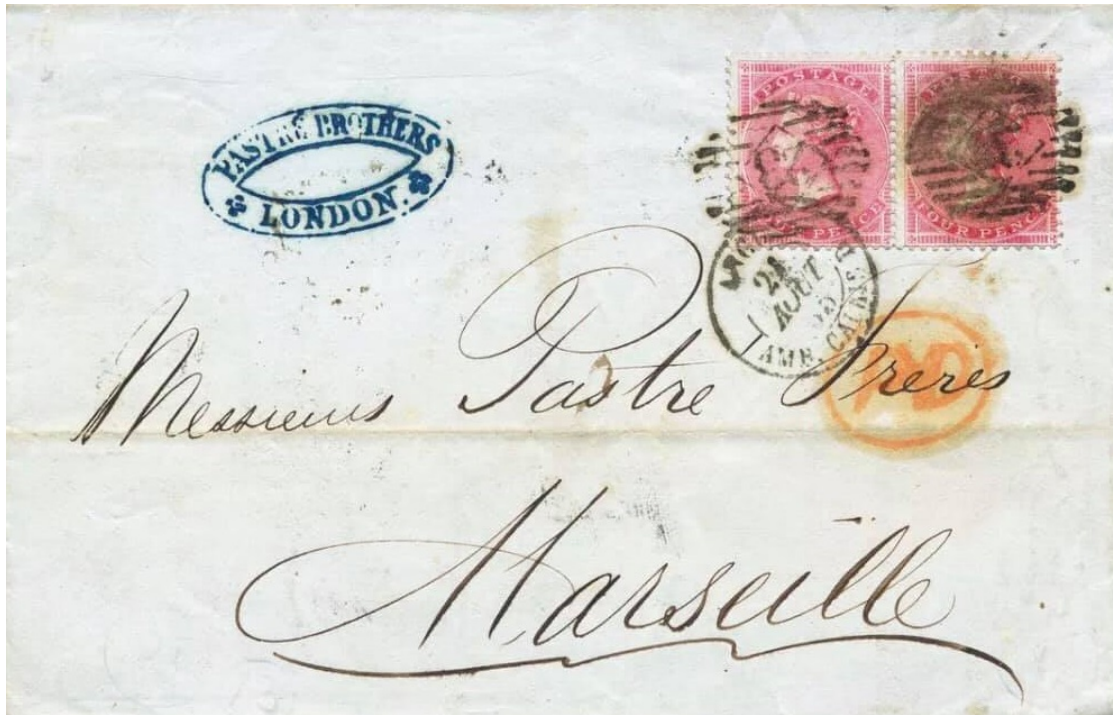 PASTRÉ BROTHERS
LONDON.
POSTAGE
FOUR PENCE
POSTAGE
FOUR PENCE
AOUT
AMB. CALAIS
PD
Messieurs Pastre Freres
Marseille